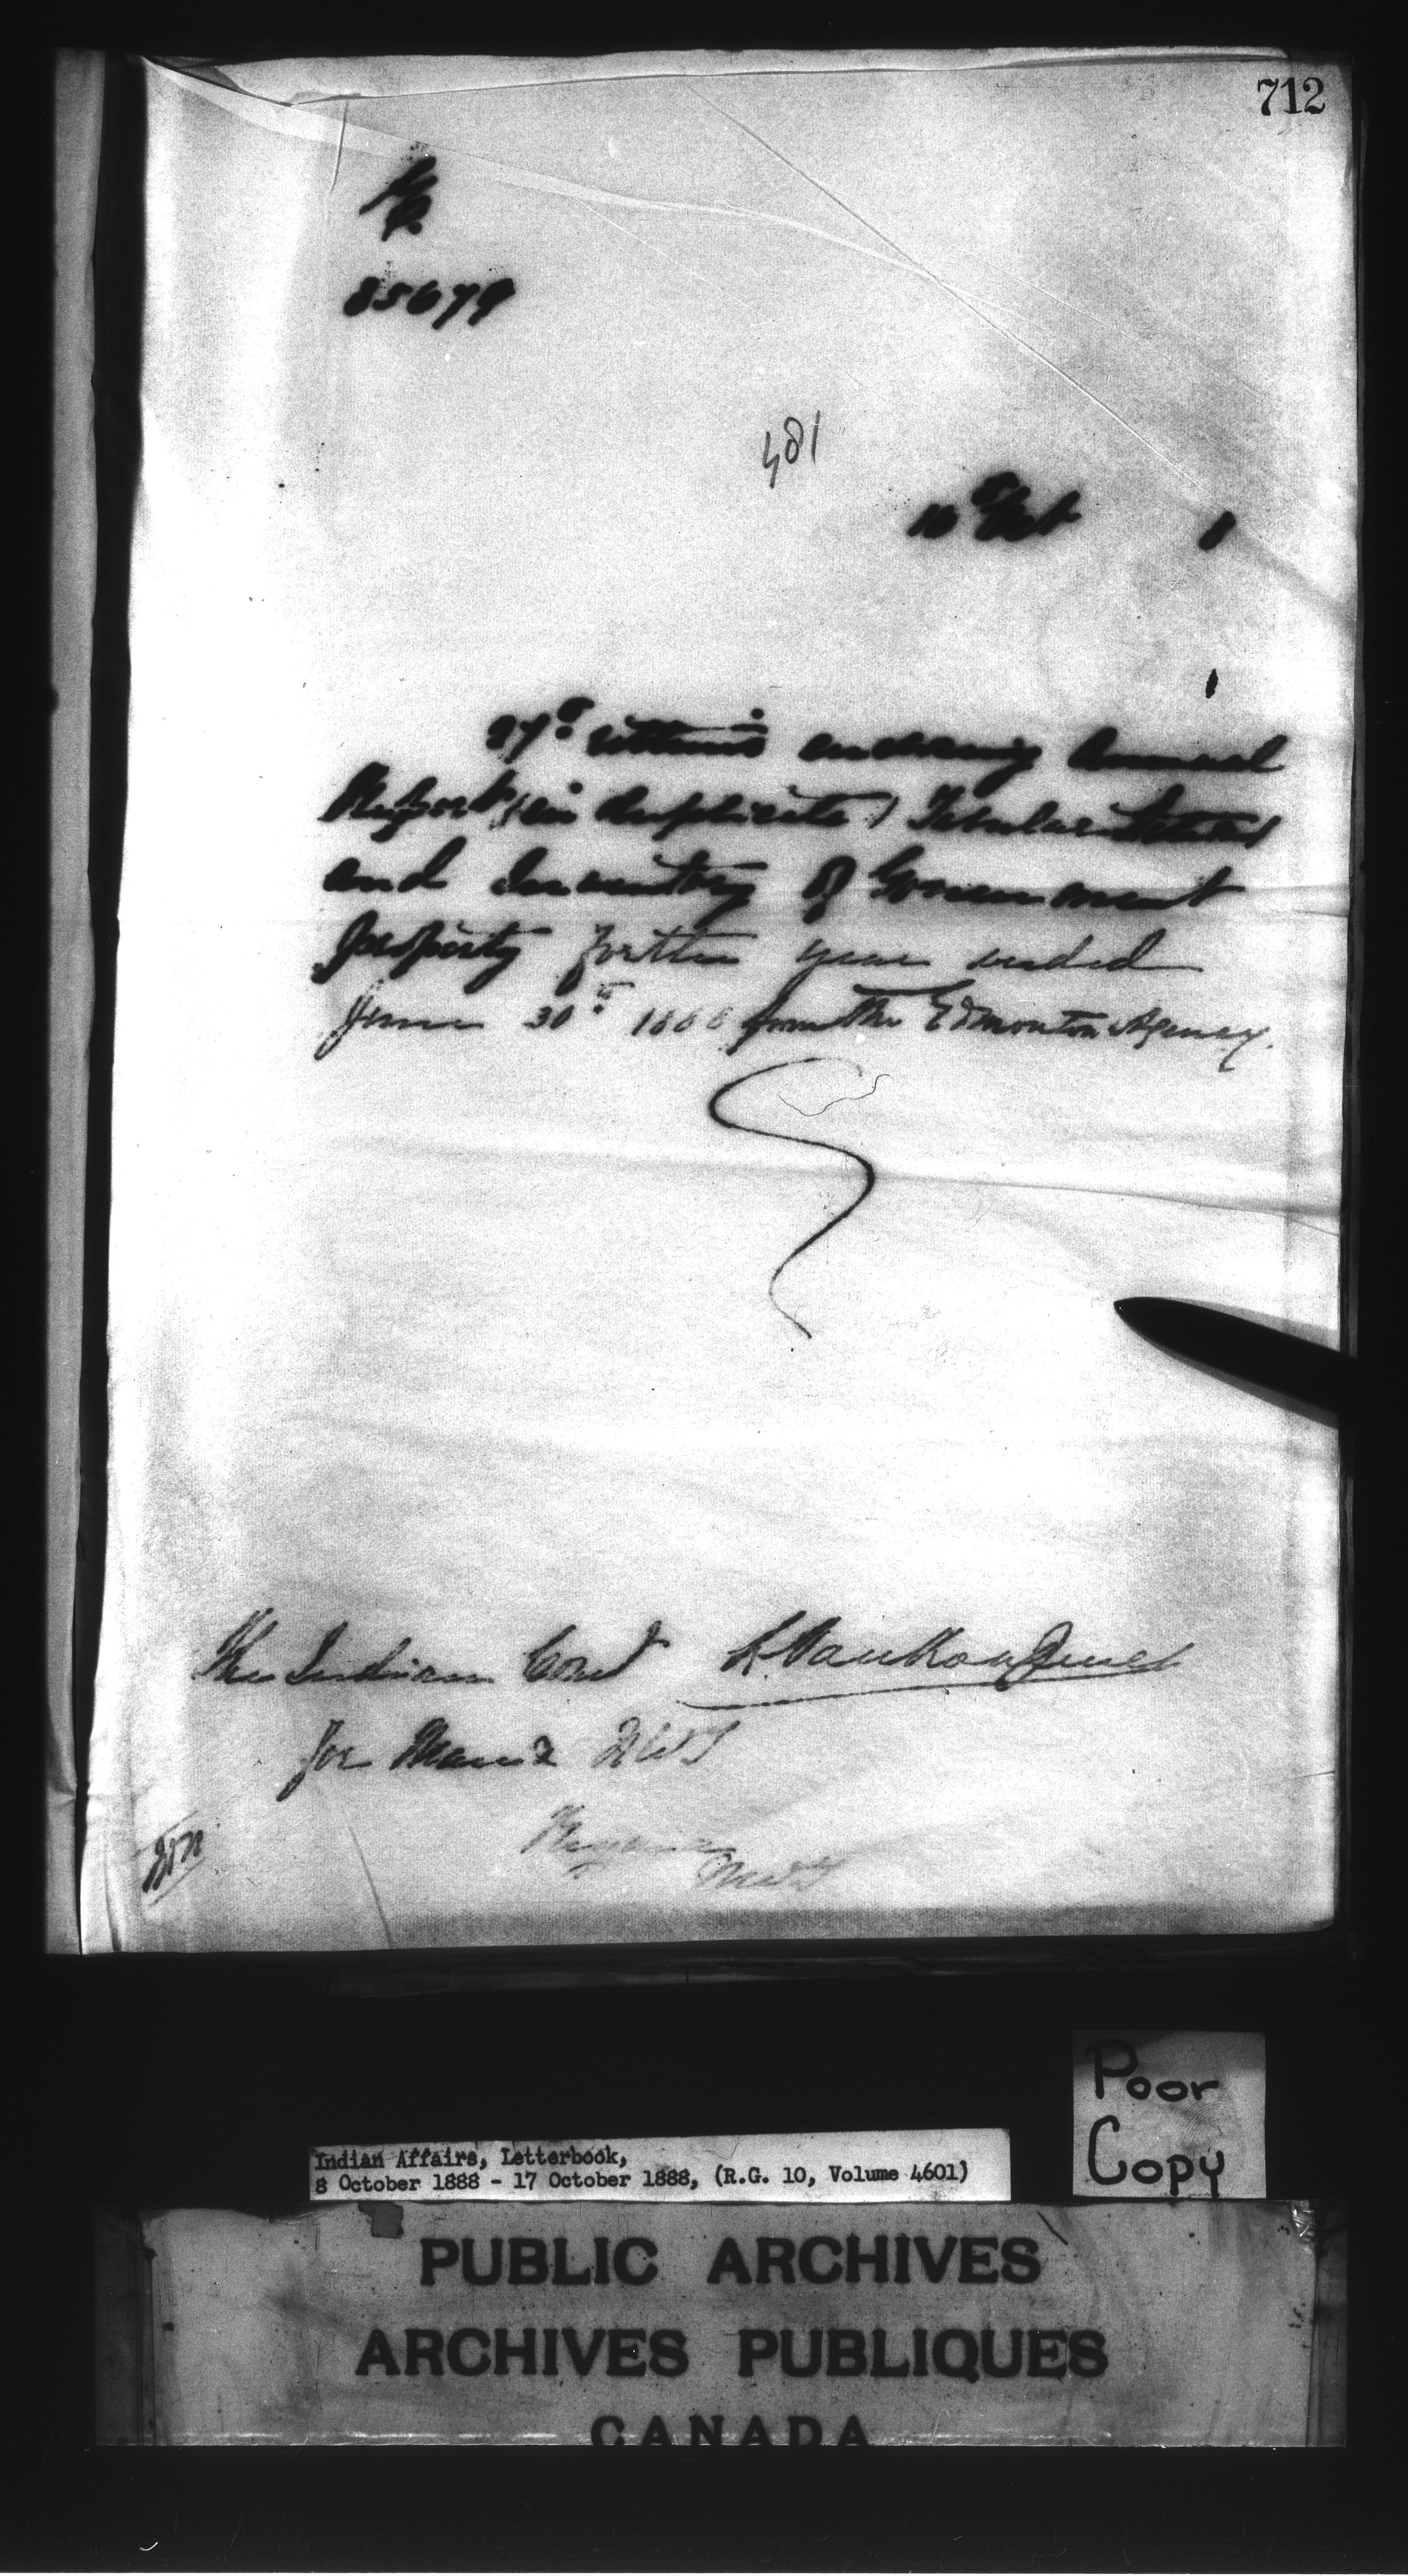 712
85679
481
16th Oct 8
27th ultimo enclosing Annual
Report (in duplicate) Tabular
and Inventory of Government
property for the year ended
June 30th 1888 from the Edmonton Agency.
The Indian Comr L. Vankoughnet
for Man & NWT
Regina
NWT
Poor
Copy
Indian Affairs, Letterbook,
8 October 1888 - 17 October 1888, (R.G. 10, Volume 4601)
PUBLIC ARCHIVES
ARCHIVES PUBLIQUES
CANADA